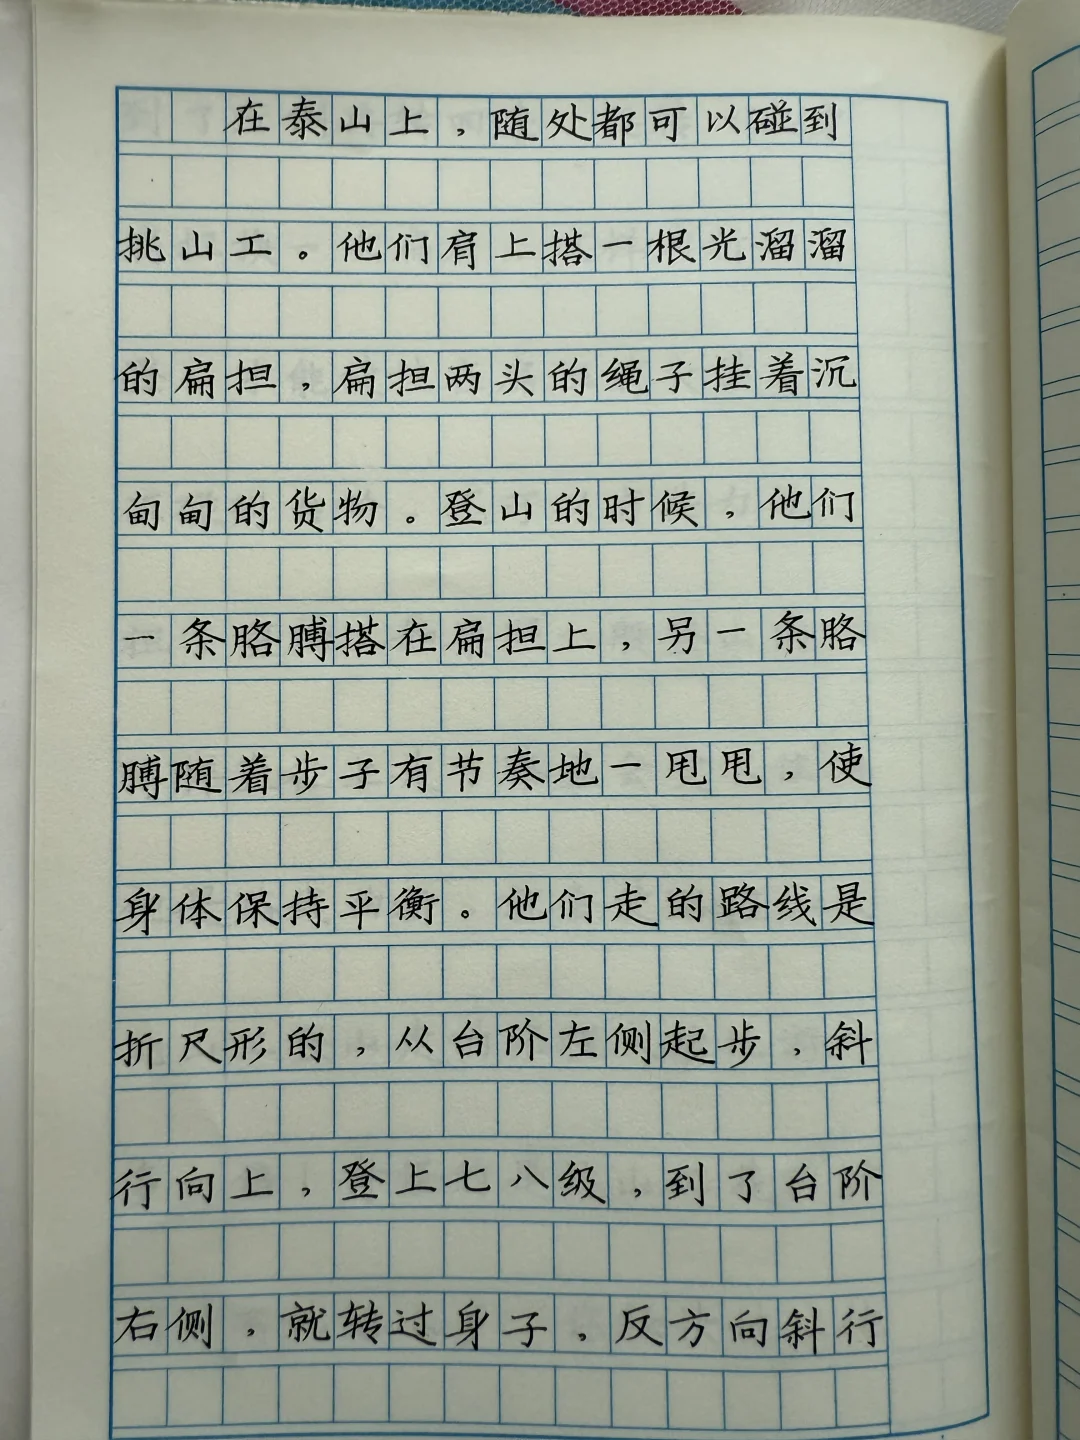 在泰山上，随处都可以碰到
挑山工。他们肩上搭一根光溜溜
的扁担，扁担两头的绳子挂着沉
甸甸的货物。登山的时候，他们
一条胳膊搭在扁担上，另一条胳
膊随着步子有节奏地一甩甩，使
身体保持平衡。他们走的路线是
折尺形的，从台阶左侧起步，斜
行向上，登上七八级，到了台阶
右侧，就转过身子，反方向斜行